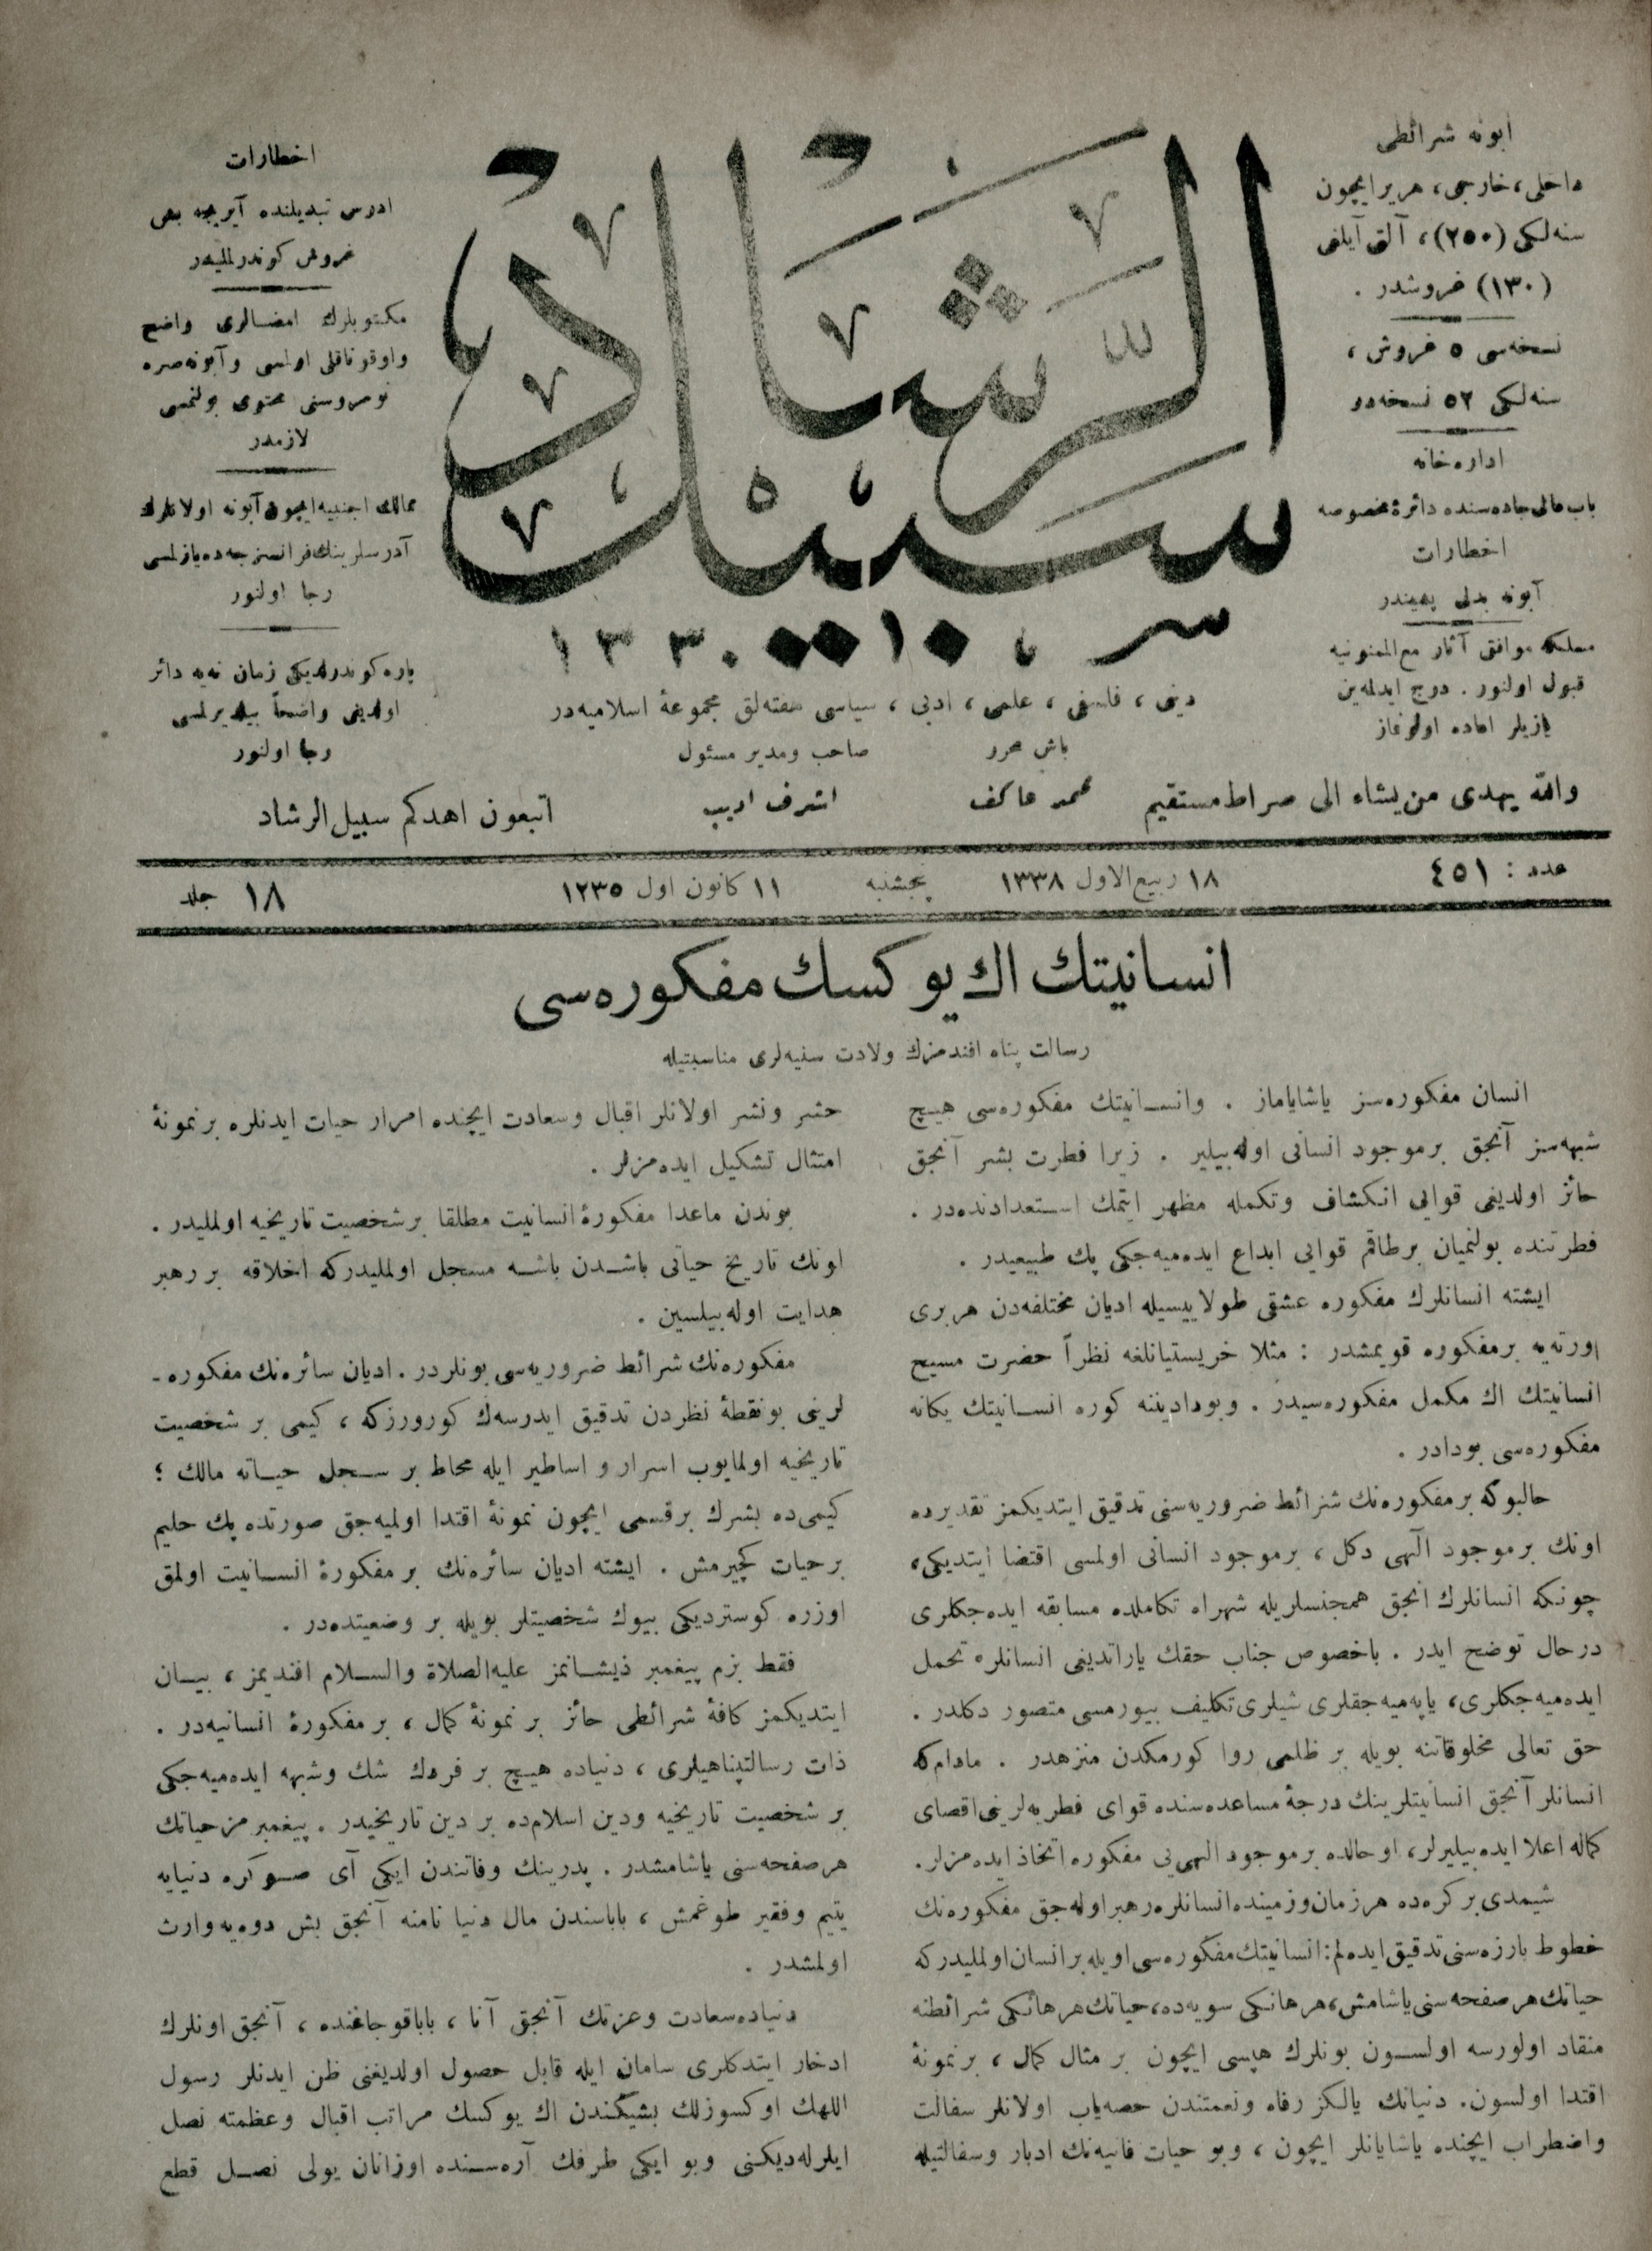 ابونه شرائطی
داخلی، خارجی، هریر ایچون
سنه‌لکی (٢٥٠)، آلتی آیلغی
(١٣٠) غروشدر .
نسخه‌سی ٥ غروش ،
سنه‌لکی ٥٢ نسخه‌در
اداره خانه
باب عالی جاده‌سنده دائرهٔ مخصوصه
اخطارات
آبونه بدلی پشیندر
مسلکه موافق آثار مع الممنونیه
قبول اولنور . درج ایدلمه‌ین
یازیلر اعاده اولونماز
سبيل الرشاد
١٣٣٠
دینی ، فلسفی ، علمی ، ادبی ، سیاسی هفته‌لق مجموعهٔ اسلامیه‌در
باش محرر
صاحب ومدیر مسئول
محمد عاکف
اشرف ادیب
اخطارات
ادرس تبدیلنده آیریجه بش
غروش کوندرلملیدر
مکتوبلرك امضالری واضح
واوقوناقلی اولمسی وآبونه صره
نومروسنی محتوی بولنمسی
لازمدر
ممالك اجنبیه ایچون آبونه اولانلرك
آدرسلرینك فرانسزجه‌ده یازلمسی
رجا اولنور
پاره کوندرلدیکی زمان نه‌یه دائر
اولدیغی واضحاً بیلدیرلمسی
رجا اولنور
والله يهدى من يشاء الى صراط مستقيم
اتبعون اهدكم سبيل الرشاد
عدد : ٤٥١
١٨ ربیع الاول ١٣٣٨
پنجشنبه
١١ کانون اول ١٢٣٥
١٨ جلد
انسانیتك اك یوکسك مفکوره‌سی
رسالت پناه افندمزك ولادت سنیه‌لری مناسبتیله
انسان مفکوره‌سز یاشایاماز . وانسانیتك مفکوره‌سی هیچ
شبهه‌سز آنجق بر موجود انسانی اوله‌بیلیر . زیرا فطرت بشر آنجق
حائز اولدیغی قوایی انکشاف وتکمله مظهر ایتمك استعدادنده‌در .
فطرتنده بولنمیان بر طاقم قوایی ابداع ایده‌میه‌جکی پك طبیعیدر .
ایشته انسانلرك مفکوره عشقی طولاییسیله ادیان مختلفه‌دن هر بری
اورته‌یه بر مفکوره قویمشدر : مثلا خریستیانلغه نظراً حضرت مسیح
انسانیتك اك مکمل مفکوره‌سیدر . وبودا دیننه کوره انسانیتك یکانه
مفکوره‌سی بودادر .
حالبوکه بر مفکوره‌نك شرائط ضروریه‌سنی تدقیق ایتدیکمز تقدیرده
اونك بر موجود الٓهی دکل ، بر موجود انسانی اولمسی اقتضا ایتدیکی،
چونکه انسانلرك انجق همجنسلریله شهراه تکاملده مسابقه ایده‌جکلری
درحال توضح ایدر . باخصوص جناب حقك یاراتدیغی انسانلره تحمل
ایده‌میه‌جکلری، یاپه‌میه‌جقلری شیلری تکلیف بیورمسی متصور دکلدر .
حق تعالی مخلوقاتنه بویله بر ظلمی روا کورمکدن منزهدر . مادام‌که
انسانلر آنجق انسانیتلرینك درجهٔ مساعده‌سنده قوای فطریه‌لرینی اقصای
کماله اعلا ایده‌بیلیرلر، او حالده بر موجود الهی‌یی مفکوره اتخاذ ایده‌مزلر.
شیمدی بر کره‌ده هر زمان وزمینده انسانلره رهبر اوله‌جق مفکوره‌نك
خطوط بارزه‌سنی تدقیق ایده‌لم: انسانیتك مفکوره‌سی اویله بر انسان اولملیدرکه
حیاتك هر صفحه‌سنی یاشامش، هر هانکی سویه‌ده، حیاتك هر هانکی شرائطنه
منقاد اولورسه اولسون بونلرك هپسی ایچون بر مثال کمال ، بر نمونهٔ
اقتدا اولسون. دنیانك یالکز رفاه ونعمتندن حصه‌یاب اولانلر سفالت
واضطراب ایچنده یاشایانلر ایچون ، وبو حیات فانیه‌نك ادبار وسفالتیله
حشر ونشر اولانلر اقبال وسعادت ایچنده امرار حیات ایدنلره بر نمونهٔ
امتثال تشکیل ایده‌مزلر .
بوندن ماعدا مفکورهٔ انسانیت مطلقا بر شخصیت تاریخیه اولملیدر .
اونك تاریخ حیاتی باشدن باشه مسجل اولملیدرکه اخلاقه بر رهبر
هدایت اوله‌بیلسین .
مفکوره‌نك شرائط ضروریه‌سی بونلردر . ادیان سائره‌نك مفکوره-
لرینی بو نقطهٔ نظردن تدقیق ایدرسه‌ك کورورزکه ، کیمی بر شخصیت
تاریخیه اولمایوب اسرار و اساطیر ایله محاط بر سجل حیاته مالك ؛
کیمی‌ده بشرك بر قسمی ایچون نمونهٔ اقتدا اولمیه‌جق صورتده پك حلیم
بر حیات کچیرمش . ایشته ادیان سائره‌نك بر مفکورهٔ انسانیت اولمق
اوزره کوستردیکی بیوك شخصیتلر بویله بر وضعیتده‌در .
فقط بزم پیغمبر ذیشانمز علیه الصلاة والسلام افندیمز ، بیان
ایتدیکمز کافهٔ شرائطی حائز بر نمونهٔ کمال ، بر مفکورهٔ انسانیه‌در .
ذات رسالتپناهیلری ، دنیاده هیچ بر فردك شك وشبهه ایده‌میه‌جکی
بر شخصیت تاریخیه ودین اسلام‌ده بر دین تاریخیدر . پیغمبرمز حیاتك
هر صفحه‌سنی یاشامشدر . پدرینك وفاتندن ایکی آی صوکره دنیایه
یتیم وفقیر طوغمش ، باباسندن مال دنیا نامنه آنجق بش دوه‌یه وارث
اولمشدر .
دنیاده سعادت وعزتك آنجق آنا ، بابا قوجاغنده ، آنجق اونلرك
ادخار ایتدکلری سامان ایله قابل حصول اولدیغنی ظن ایدنلر رسول
اللهك اوکسوزلك بشیکندن اك یوکسك مراتب اقبال وعظمته نصل
ایلرله‌دیکنی وبو ایکی طرفك آره‌سنده اوزانان یولی نصل قطع